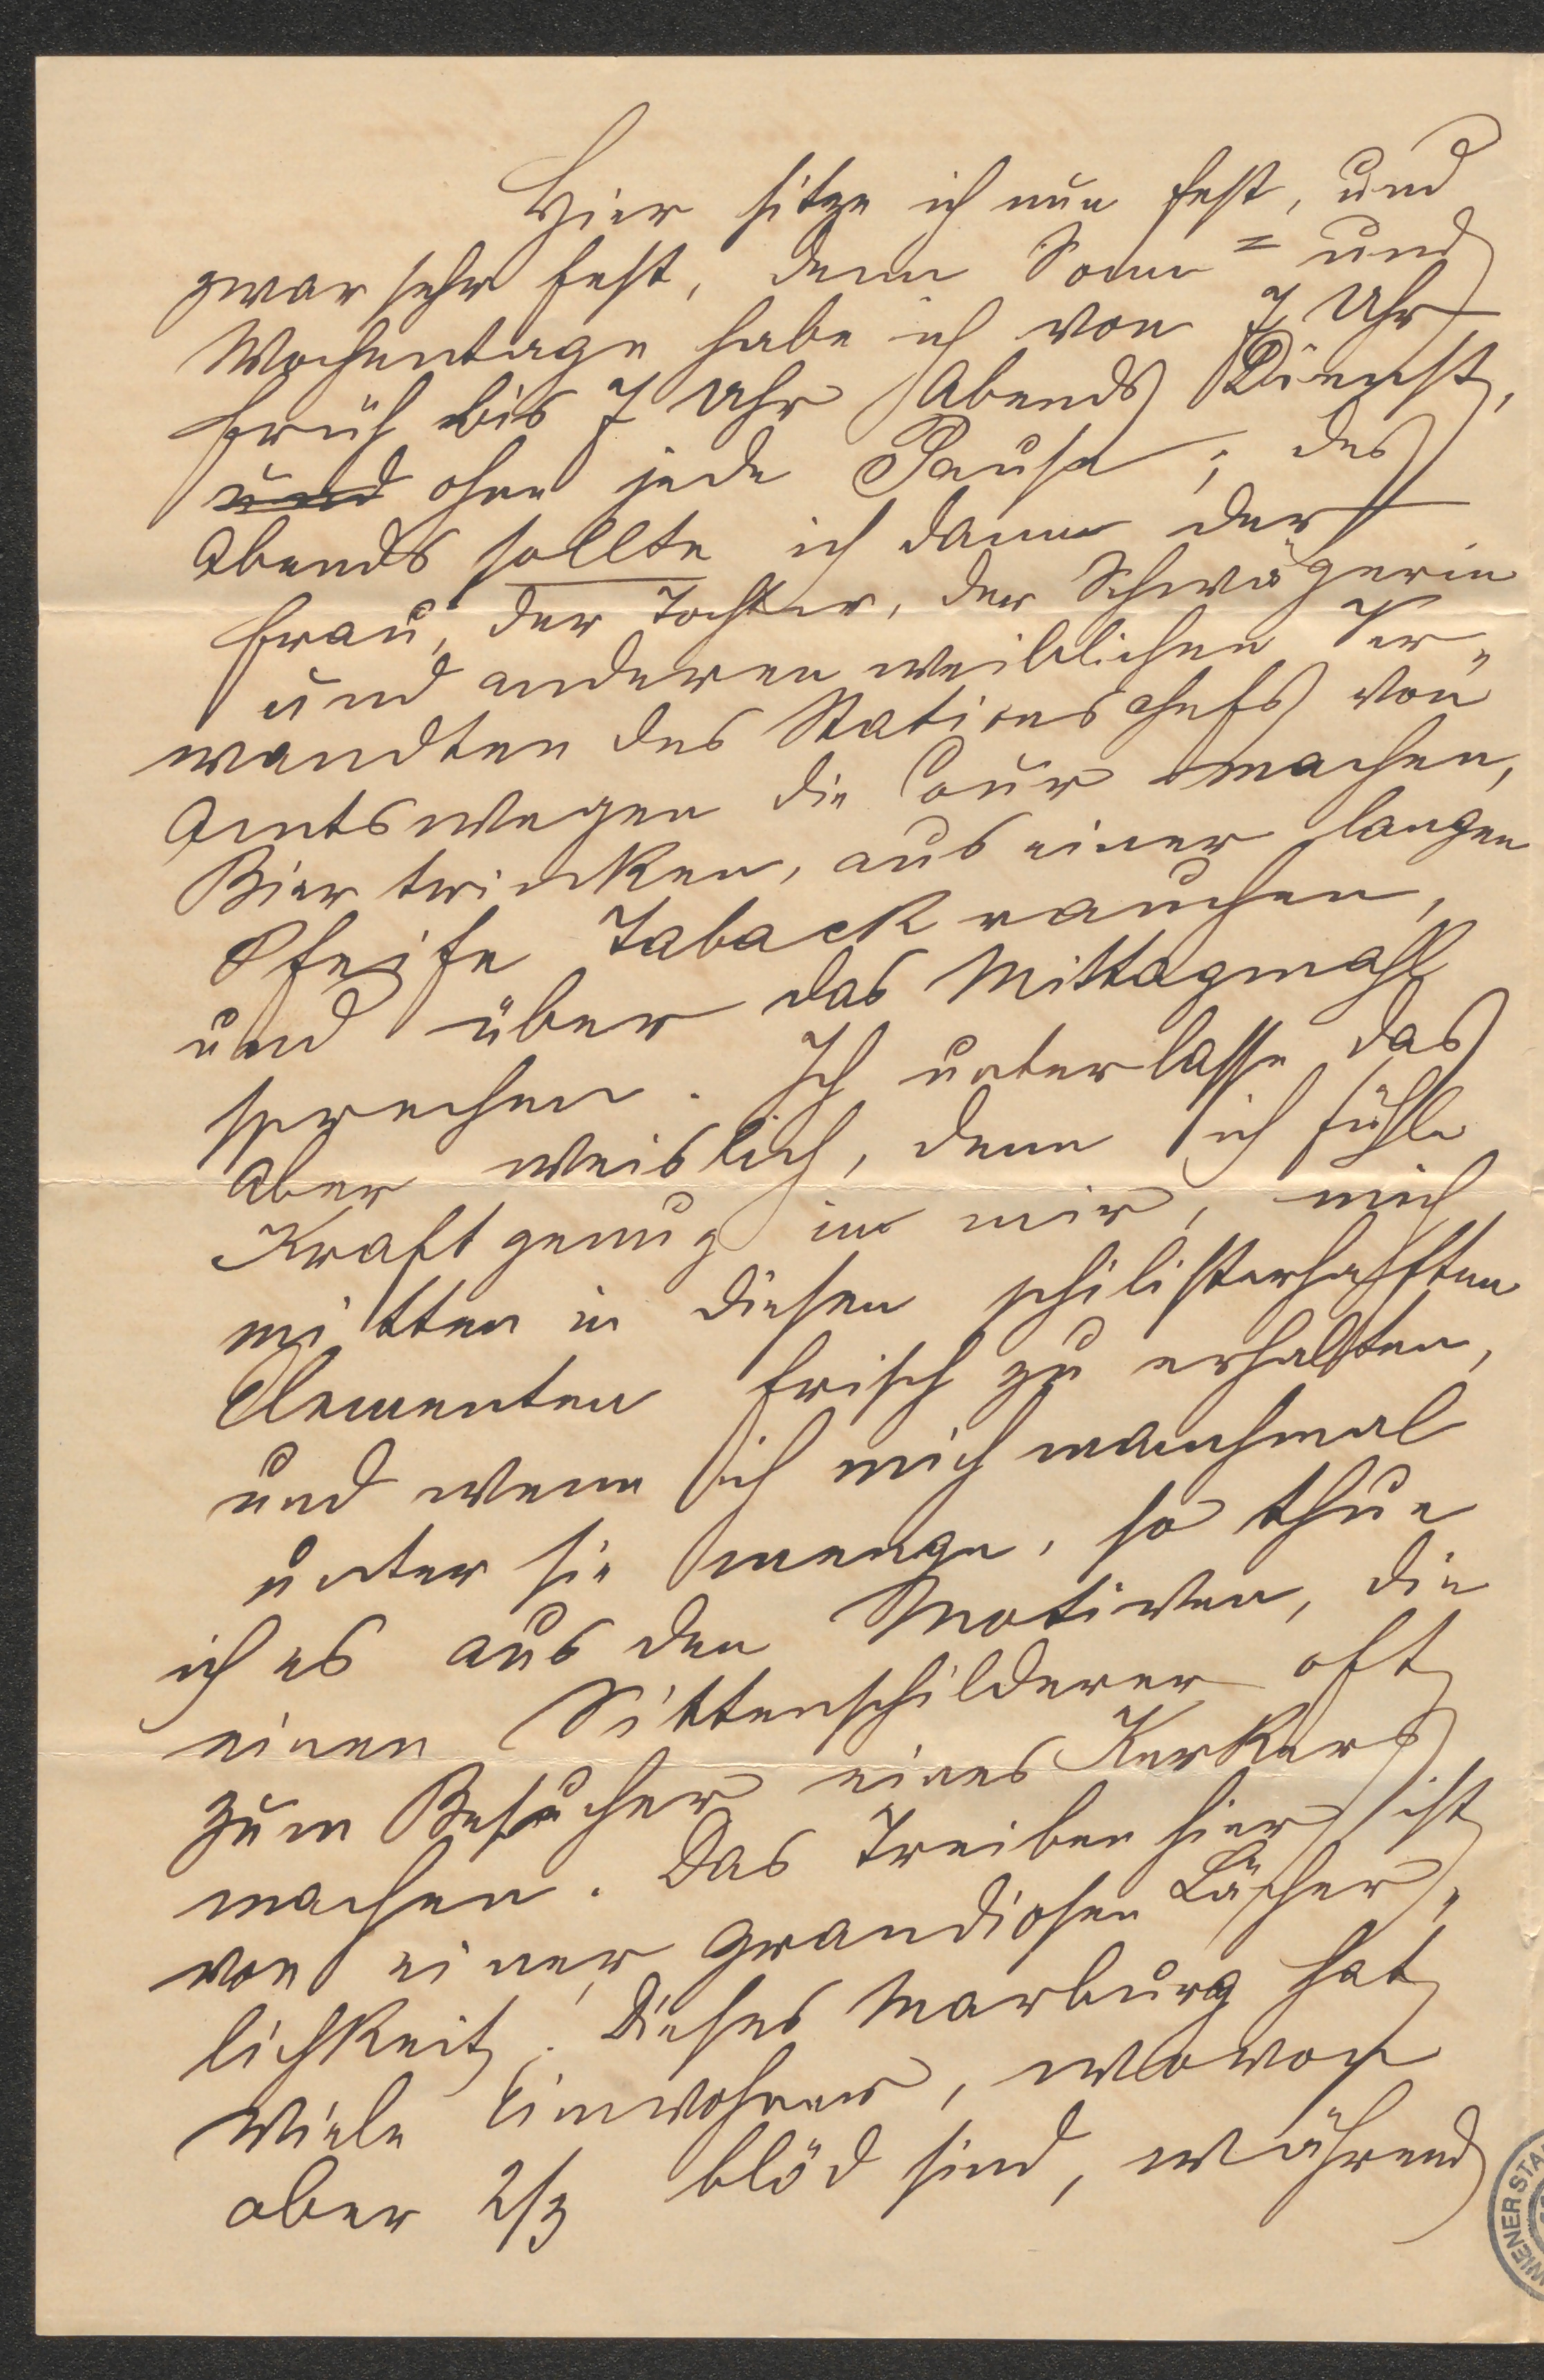 Hier sitze ich nun fest, und
zwar sehr fest, denn Sonn= und
Wochentage habe ich von 7 Uhr
früh bis 7 Uhr Abends Dienst,
und ohne jede Pause; des
Abends sollte ich dann der
Frau, der Tochter, der Schwägerin
und anderen weiblichen Ver„
wandten des Stationschefs von
Amtswegen die Cour machen,
Bier trincken, aus einer langen
Pfeife Taback rauchen,
und über das Mittagmahl
sprechen. Ich unterlasse das
aber weislich, denn ich fühle
Kraft genug in mir, mich
mitten in diesen philisterhafften
Elementen frisch zu erhalten,
und wenn ich mich manchmal
unter sie menge, so thue
ich es aus den Motiven, die
einen Sittenschilderer oft
zum Besucher eines Kerkers
machen. Das Treiben hier ist
von einer grandiosen Lächer„
lichkeit. Dieses Marburg hat
viele Einwohner, wovon
aber 2/3 blöd sind, während
WIENER STA